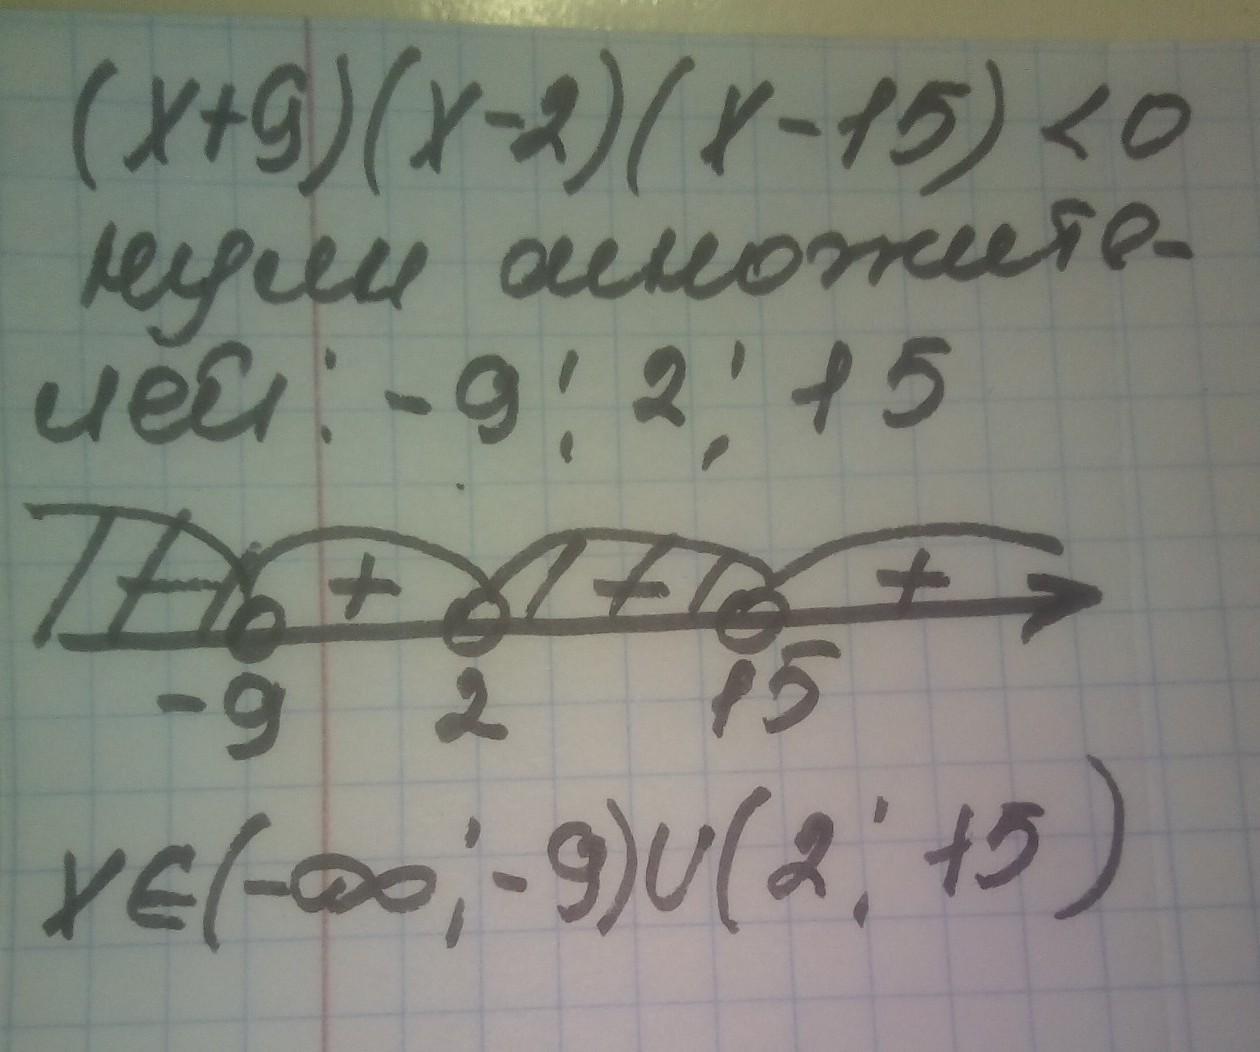 (x+9)(x-2)(x-15)<0
нули множите-
лей: -9; 2; 15
- + - +
-9 2 15
x∈(-∞; -9)∪(2; 15)